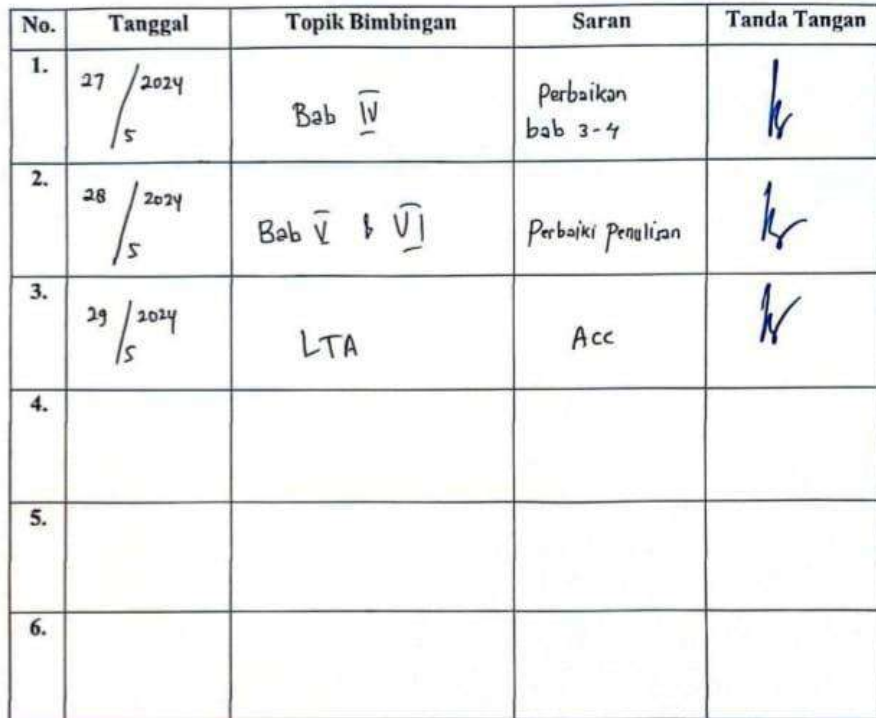 No. Tanggal Topik Bimbingan Saran Tanda Tangan
1. 27/5 2024 Bab IV Perbaikan
bab 3-4
2. 28/5 2024 Bab V & VI Perbaiki Penulisan
3. 29/5 2024 LTA Acc
4.
5.
6.